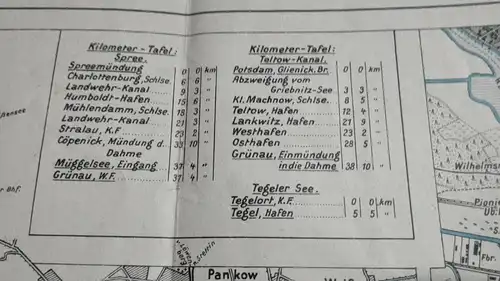 Kilometer-Tafel:
Spree.
Spreemündung 0 0 km
Charlottenburg, Schlse. 6 6 "
Landwehr-Kanal 9 3 "
Humboldt-Hafen 15 6 "
Mühlendamm, Schlse. 18 3 "
Landwehr-Kanal 21 3 "
Stralau, K.F. 23 2 "
Cöpenick, Mündung d. Dahme 33 10 "
Müggelsee, Eingang 37 4 "
Grünau, W.F. 37 4 "
Kilometer-Tafel:
Teltow-Kanal.
Potsdam, Glienick. Br. 0 0 km
Abzweigung vom
Griebnitz-See 3 3 "
Kl. Machnow, Schlse. 8 5 "
Teltow, Hafen 12 4 "
Lankwitz, Hafen 21 9 "
Westhafen 23 2 "
Osthafen 28 5 "
Grünau, Einmündung
in die Dahme 38 10 "
Tegeler See.
Tegelort, K.F. 0 0 km
Tegel, Hafen 5 5 "
Wilhelms
Pionier
Üb.
Fbr.
er Bhf.
n. Stettin
Pankow